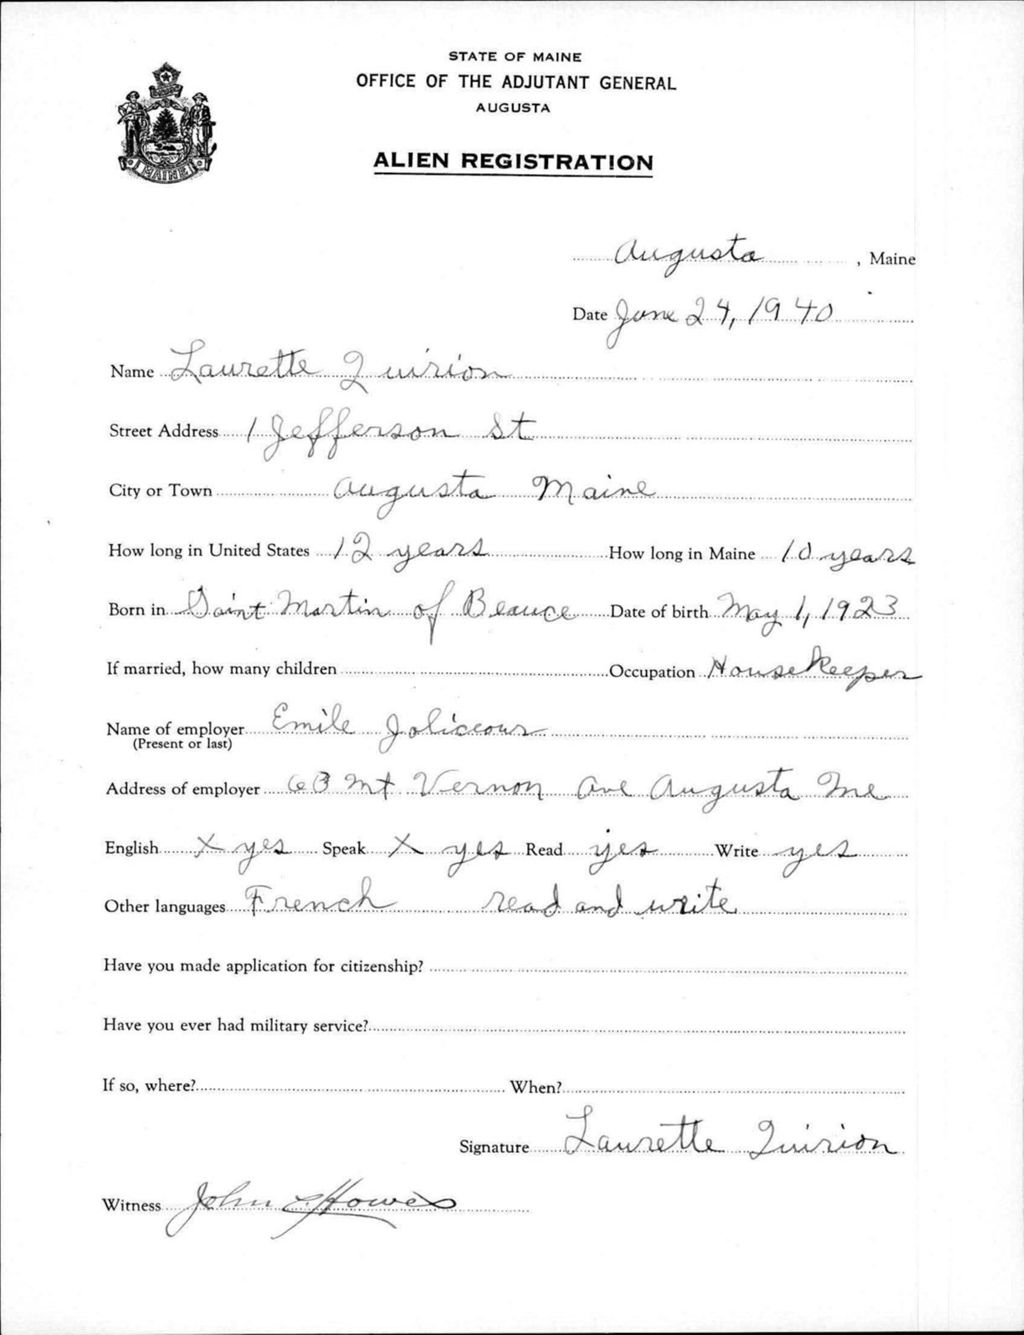 STATE OF MAINE
OFFICE OF THE ADJUTANT GENERAL
AUGUSTA
ALIEN REGISTRATION
MAINE
Augusta, Maine
Date June 24, 1940
Name Laurette Quirion
Street Address 1 Jefferson St
City or Town Augusta Maine
How long in United States 12 years How long in Maine 10 years
Born in Saint Martin of Beauce Date of birth May 1, 1923
If married, how many children Occupation Housekeeper
Name of employer Emile Jolicoeur
(Present or last)
Address of employer 63 Mt Vernon Ave Augusta Me
English X yes Speak X yes Read yes Write yes
Other languages French read and write
Have you made application for citizenship?
Have you ever had military service?
If so, where? When?
Signature Laurette Quirion
Witness John Howes